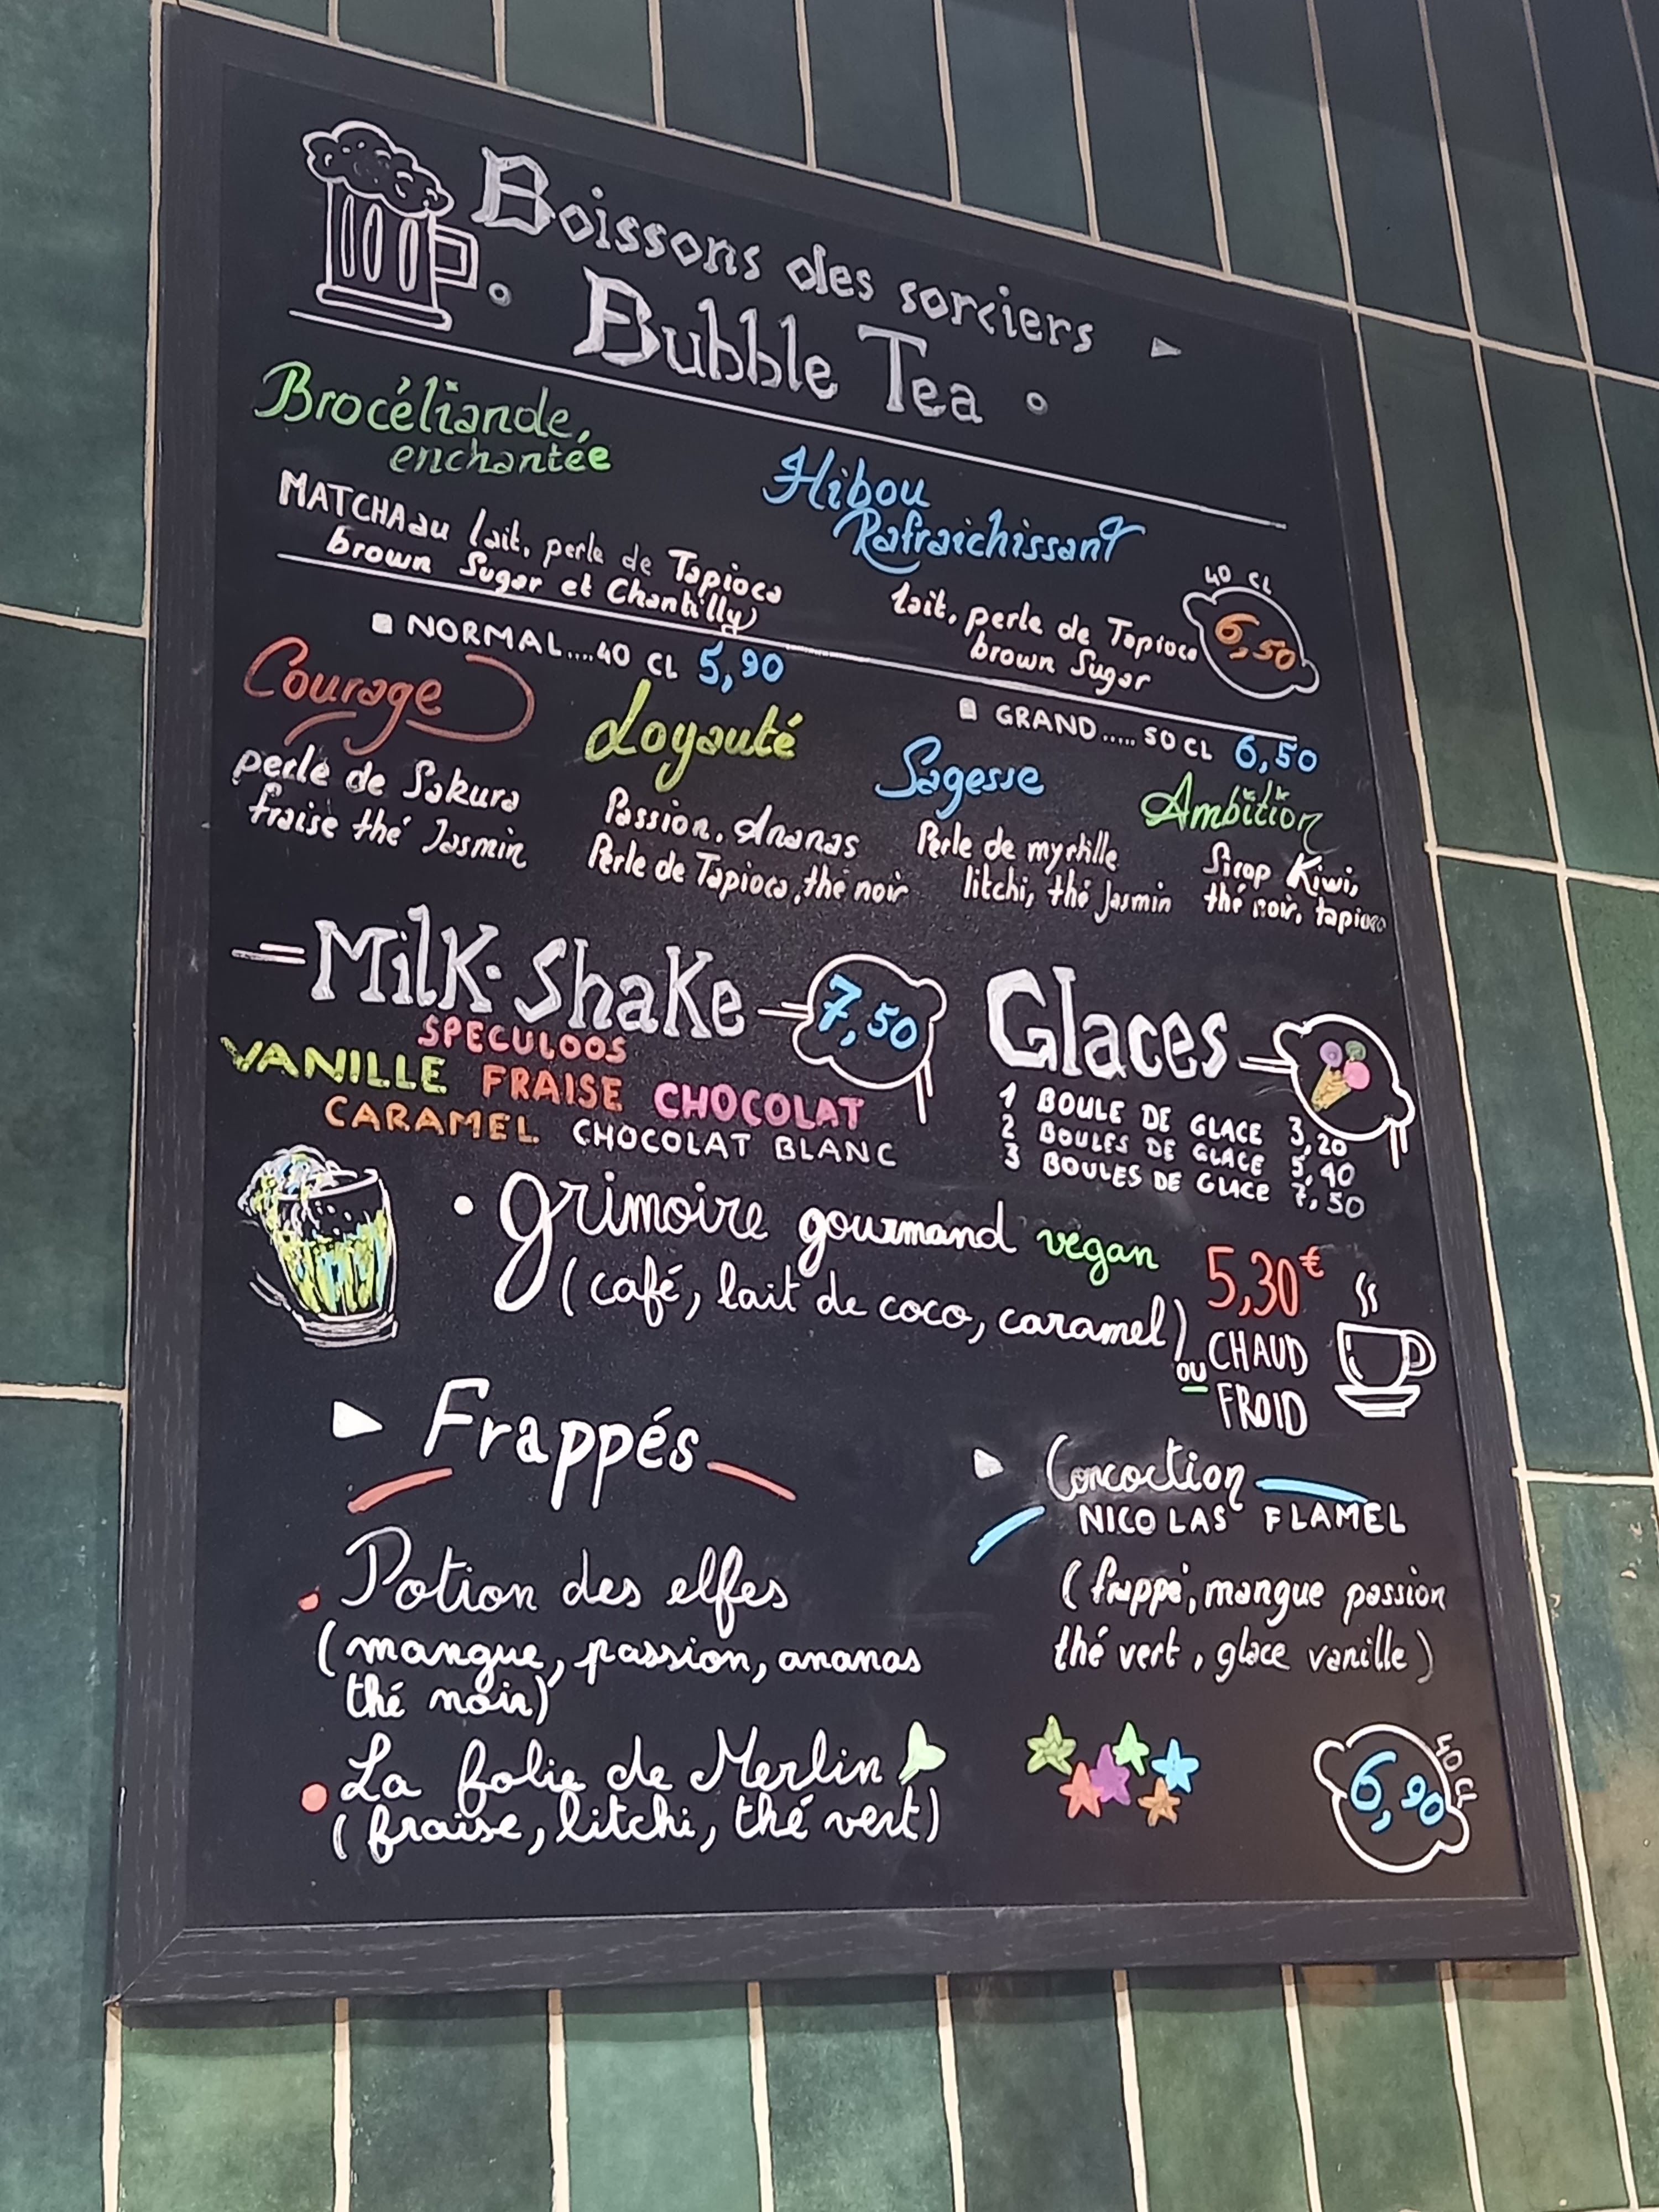 Boissons des sorciers
Bubble Tea
Brocéliande
enchantée
MATCHA au lait, perle de Tapioca
brown Sugar et Chantilly
Hibou
Rafraichissant
lait, perle de Tapioca
brown Sugar
40 CL
6,50
NORMAL....40 CL 5,90
GRAND..... 50 CL 6,50
Courage
perle de Sakura
fraise thé Jasmin
Loyauté
Passion, Ananas
Perle de Tapioca, thé noir
Sagesse
Perle de myrtille
litchi, thé Jasmin
Ambition
Sirop Kiwi,
thé noir, tapioca
Milk-Shake
7,50
SPECULOOS
VANILLE FRAISE CHOCOLAT
CARAMEL CHOCOLAT BLANC
Glaces
1 BOULE DE GLACE 3,20
2 BOULES DE GLACE 5,40
3 BOULES DE GLACE 7,50
Grimoire gourmand vegan
(café, lait de coco, caramel)
5,30€
CHAUD
OU
FROID
Frappés
Potion des elfes
(mangue, passion, ananas
thé noir)
La folie de Merlin
(fraise, litchi, thé vert)
Concoction
NICOLAS FLAMEL
(frappé, mangue passion
thé vert, glace vanille)
40 CL
6,90